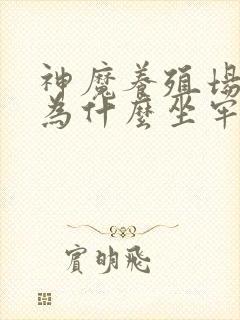 神魔養殖場
為什麼坐牢
賓明飛